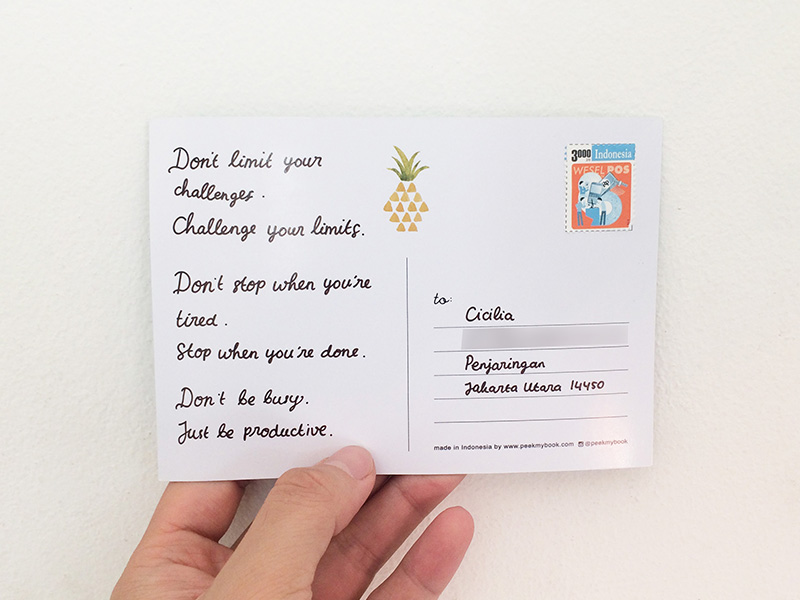 Don't limit your
challenges.
Challenge your limits.
Don't stop when you're
tired.
Stop when you're done.
Don't be busy.
Just be productive.
3000 Indonesia
WESEL POS
to:
Cicilia
Penjaringan
Jakarta Utara 14450
made in Indonesia by www.peekmybook.com @peekmybook